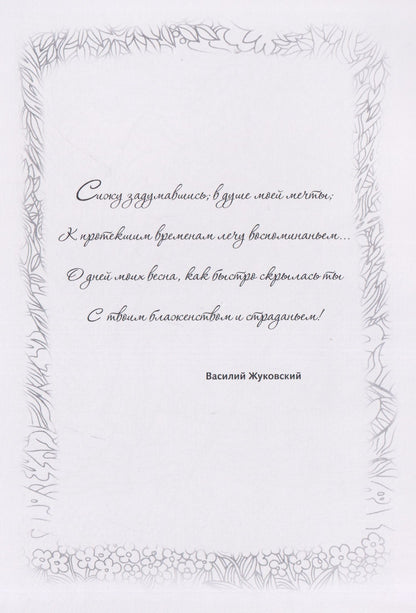 Сижу задумавшись; в душе моей мечты;
К протекшим временам лечу воспоминаньем...
О дней моих весна, как быстро скрылась ты
С твоим блаженством и страданьем!
Василий Жуковский